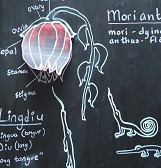 ovary
sepal
stamen
stigma
Moriant
mori - dying
anthus - "fl
Lingdiu
Lingua (tongue)
Diu
"long tongue"